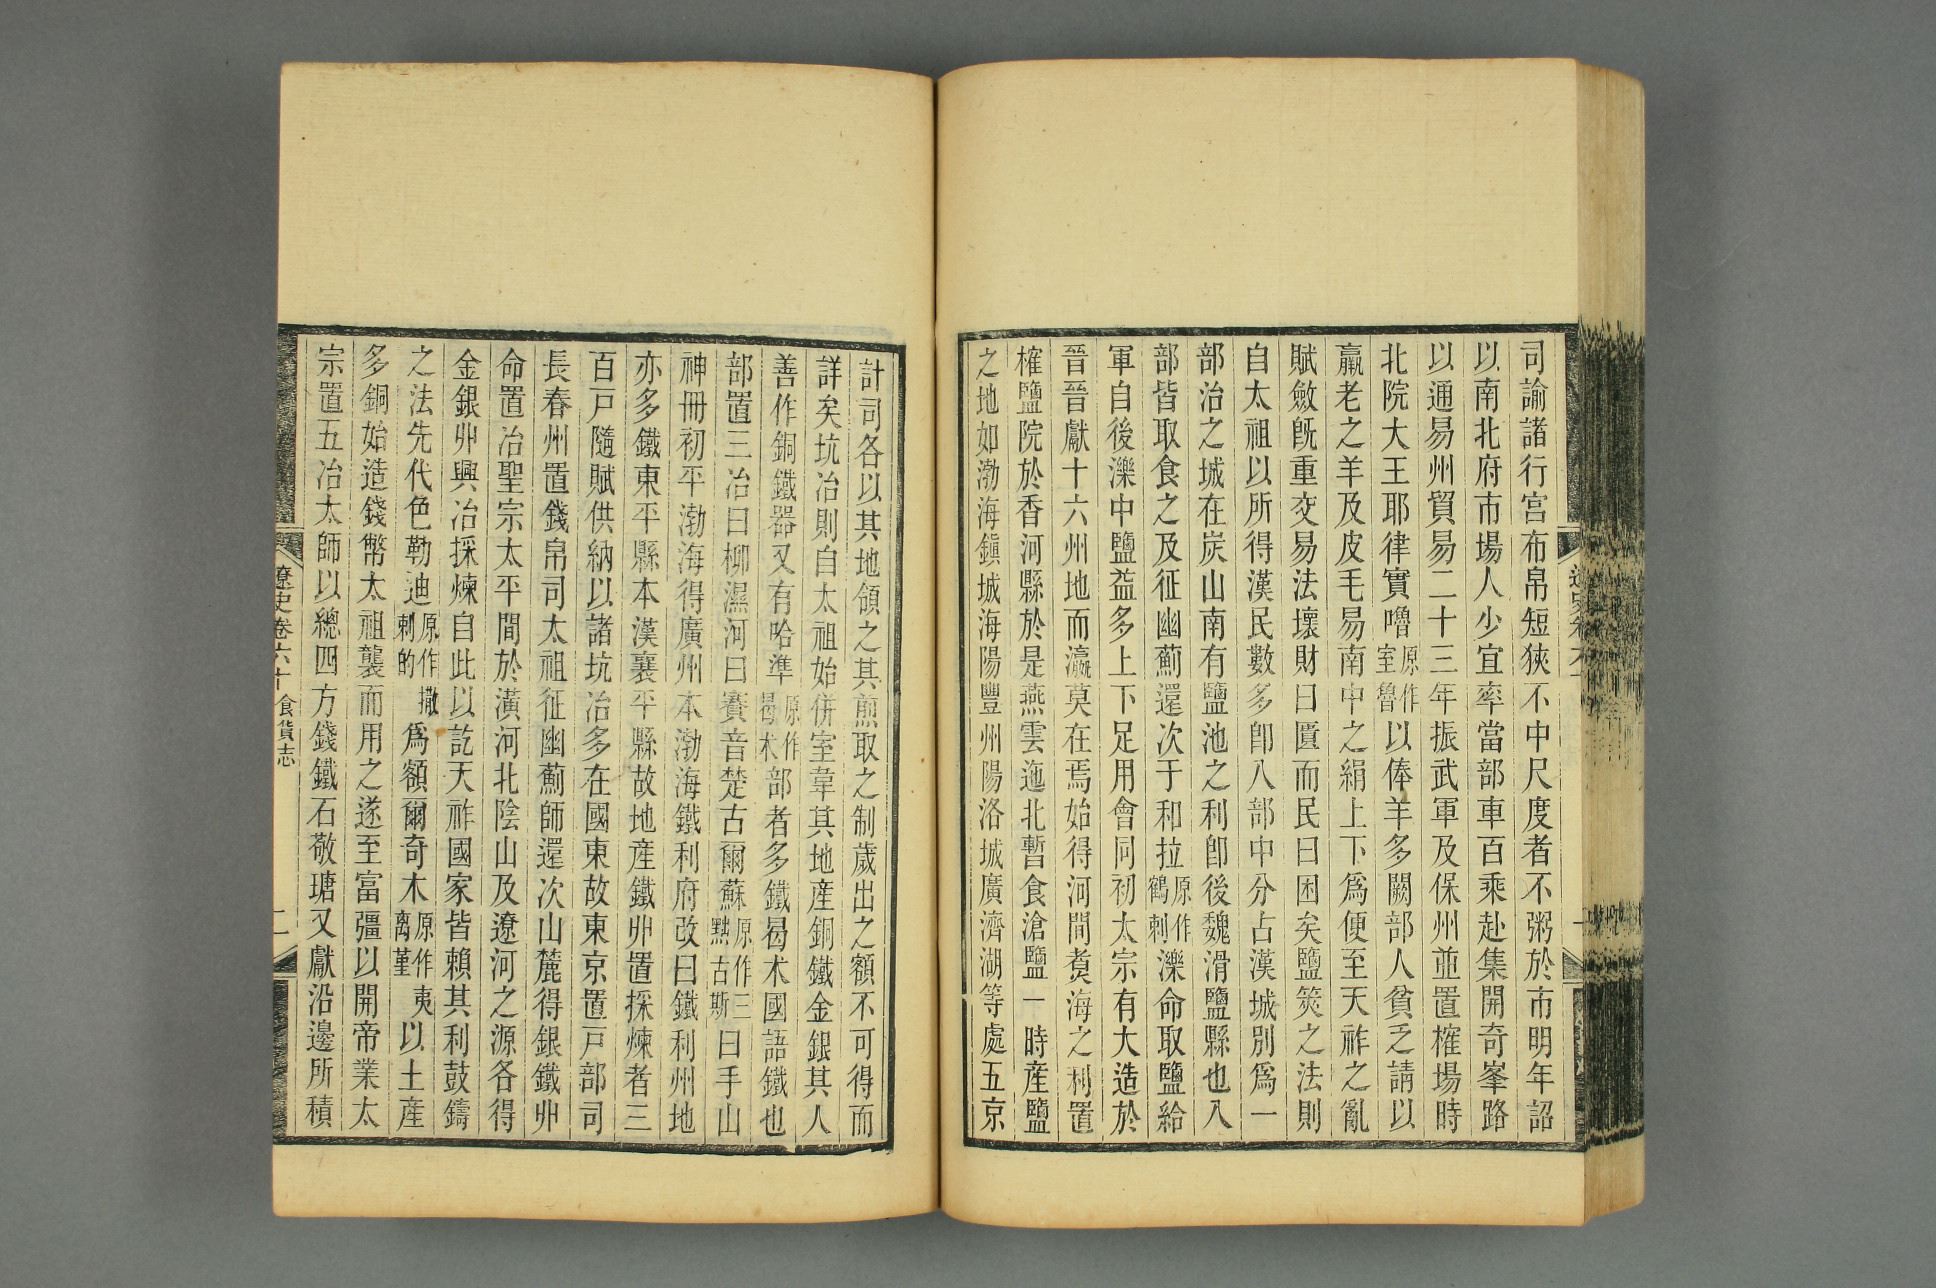 司諭諸行宮布帛短狹不中尺度者不粥於市明年詔
以南北府市場人少宜率當部車百乘赴集開奇峯路
以通易州貿易二十三年振武軍及保州並置榷場時
北院大王耶律實嚕原作室魯以俸羊多闕部人貧乏請以
羸老之羊及皮毛易南中之絹上下爲便至天祚之亂
賦斂旣重交易法壞財曰匱而民曰困矣鹽筴之法則
自太祖以所得漢民數多卽八部中分占漢城別爲一
部治之城在炭山南有鹽池之利卽後魏滑鹽縣也八
部皆取食之及征幽薊還次于和拉原作鶴剌濼命取鹽給
軍自後濼中鹽益多上下足用會同初太宗有大造於
晉晉獻十六州地而瀛莫在焉始得河間煑海之利置
榷鹽院於香河縣於是燕雲迤北暫食滄鹽一時産鹽
之地如渤海鎭城海陽豐州陽洛城廣濟湖等處五京
計司各以其地領之其煎取之制歲出之額不可得而
詳矣坑冶則自太祖始併室韋其地産銅鐵金銀其人
善作銅鐵器又有哈準原作曷朮部者多鐵曷朮國語鐵也
部置三冶曰柳濕河曰賽音楚古爾蘇原作三黜古斯曰手山
神冊初平渤海得廣州本渤海鐵利府改曰鐵利州地
亦多鐵東平縣本漢襄平縣故地産鐵卝置採煉者三
百戸隨賦供納以諸坑冶多在國東故東京置戸部司
長春州置錢帛司太祖征幽薊師還次山麓得銀鐵卝
命置冶聖宗太平間於潢河北陰山及遼河之源各得
金銀卝興冶採煉自此以訖天祚國家皆賴其利鼓鑄
之法先代色勒迪原作撒剌的爲額爾奇木原作夷离堇以土産
多銅始造錢幣太祖襲而用之遂至富彊以開帝業太
宗置五冶太師以總四方錢鐵石敬瑭又獻沿邊所積
遼史卷六十 食貨志 二